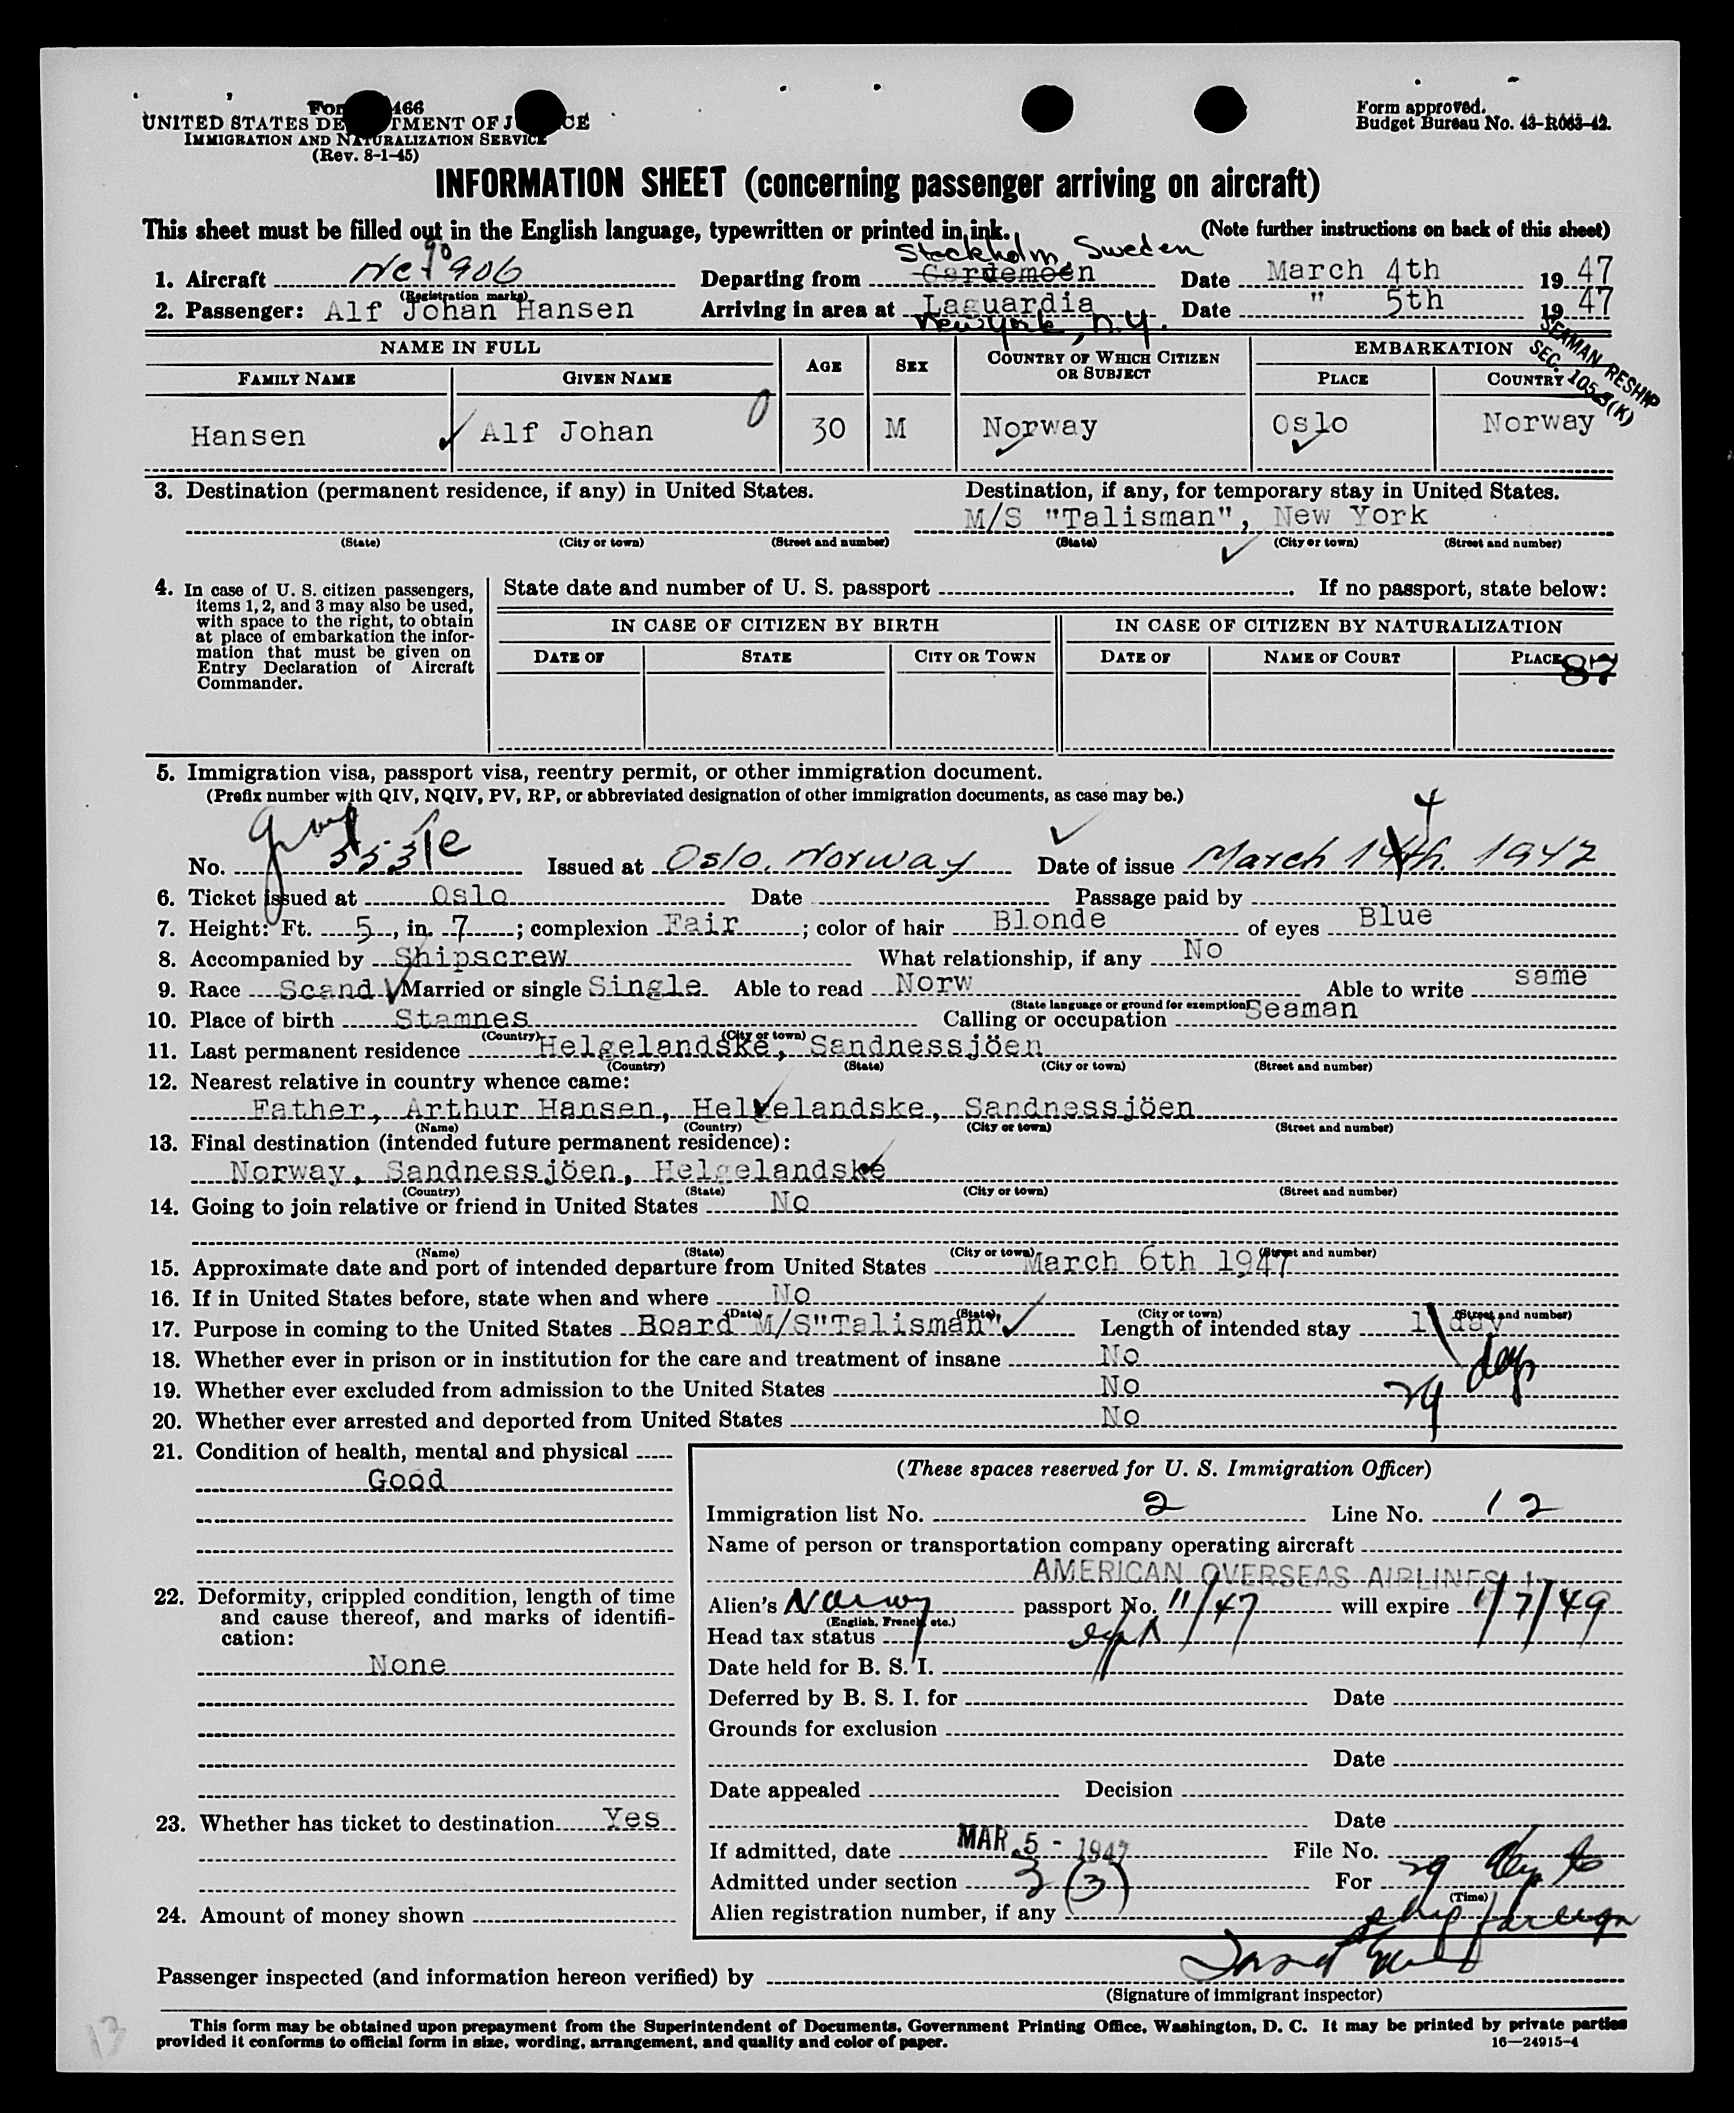 Form 466
UNITED STATES DEPARTMENT OF JUSTICE
IMMIGRATION AND NATURALIZATION SERVICE
(Rev. 8-1-45)
Form approved.
Budget Bureau No. 43-R063-42.
INFORMATION SHEET (concerning passenger arriving on aircraft)
This sheet must be filled out in the English language, typewritten or printed in ink. (Note further instructions on back of this sheet)
Stockholm, Sweden
1. Aircraft Nc 90906 Departing from Gardemoen Date March 4th 1947
(Registration marks)
2. Passenger: Alf Johan Hansen Arriving in area at Laguardia Date " 5th 1947
New York, N.Y.
SEAMAN RESHIP
SEC. 105.3(K)
NAME IN FULL AGE SEX COUNTRY OF WHICH CITIZEN OR SUBJECT EMBARKATION
FAMILY NAME GIVEN NAME PLACE COUNTRY
Hansen Alf Johan 30 M Norway Oslo Norway
3. Destination (permanent residence, if any) in United States. Destination, if any, for temporary stay in United States.
M/S "Talisman", New York
(State) (City or town) (Street and number) (State) (City or town) (Street and number)
4. In case of U. S. citizen passengers, items 1, 2, and 3 may also be used, with space to the right, to obtain at place of embarkation the information that must be given on Entry Declaration of Aircraft Commander.
State date and number of U. S. passport . If no passport, state below:
IN CASE OF CITIZEN BY BIRTH IN CASE OF CITIZEN BY NATURALIZATION
DATE OF STATE CITY OR TOWN DATE OF NAME OF COURT PLACE
87
5. Immigration visa, passport visa, reentry permit, or other immigration document.
(Prefix number with QIV, NQIV, PV, RP, or abbreviated designation of other immigration documents, as case may be.)
4
No. 553 Issued at Oslo, Norway Date of issue March 14th. 1947
6. Ticket issued at Oslo Date Passage paid by
7. Height: Ft. 5, in. 7; complexion Fair; color of hair Blonde of eyes Blue
8. Accompanied by Shipscrew What relationship, if any No
9. Race Scand Married or single Single Able to read Norw Able to write same
(State language or ground for exemption)
10. Place of birth Stamnes Calling or occupation Seaman
(Country) (City or town)
11. Last permanent residence Helgelandske, Sandnessjöen
(Country) (State) (City or town) (Street and number)
12. Nearest relative in country whence came:
Father, Arthur Hansen, Helgelandske, Sandnessjöen
(Name) (Country) (City or town) (Street and number)
13. Final destination (intended future permanent residence):
Norway, Sandnessjöen, Helgelandske
(Country) (State) (City or town) (Street and number)
14. Going to join relative or friend in United States No
(Name) (State) (City or town) (Street and number)
15. Approximate date and port of intended departure from United States March 6th 1947
16. If in United States before, state when and where No
(Date) (State) (City or town) (Street and number)
17. Purpose in coming to the United States Board M/S"Talisman" Length of intended stay 1 day
29 days
18. Whether ever in prison or in institution for the care and treatment of insane No
19. Whether ever excluded from admission to the United States No
20. Whether ever arrested and deported from United States No
21. Condition of health, mental and physical
Good
22. Deformity, crippled condition, length of time and cause thereof, and marks of identification:
None
23. Whether has ticket to destination Yes
24. Amount of money shown
(These spaces reserved for U. S. Immigration Officer)
Immigration list No. 2 Line No. 12
Name of person or transportation company operating aircraft
AMERICAN OVERSEAS AIRLINES
Alien's Norwy passport No. 11/47 will expire 1/7/49
(English, French, etc.)
Head tax status
Date held for B. S. I.
Deferred by B. S. I. for Date
Grounds for exclusion
Date
Date appealed Decision
Date
If admitted, date MAR 5 - 1947 File No.
Admitted under section 3 (3) For 29 days to
(Time)
Alien registration number, if any ship foreign
Passenger inspected (and information hereon verified) by
(Signature of immigrant inspector)
This form may be obtained upon prepayment from the Superintendent of Documents, Government Printing Office, Washington, D. C. It may be printed by private parties
provided it conforms to official form in size, wording, arrangement, and quality and color of paper. 16—24915-4
13